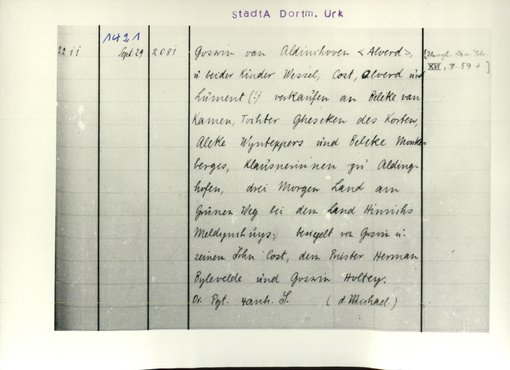 StadtA Dortm. Urk
1421
22 ii Sept. 29 2081 Goswin van Aldinchoven <Alverd>,
u beider Kinder Wessel, Cost, Alverd und
Lüment (!) verkaufen an Beleke van
Kamen, Tochter Gheseken des Korten,
Aleke Wynteppers und Beleke Monke-
berges, Klausnerinnen zu Alding-
hofen, drei Morgen Land am
Grünen Weg bei dem Land Hinrichs
Meldynshuys; besiegelt von Goswin u.
seinem Sohn Cost, dem Priester Herman
Bylevelde und Goswin Holtey.
Or. Pgt. anh. S. (d Michael.)
XVI, S. 59